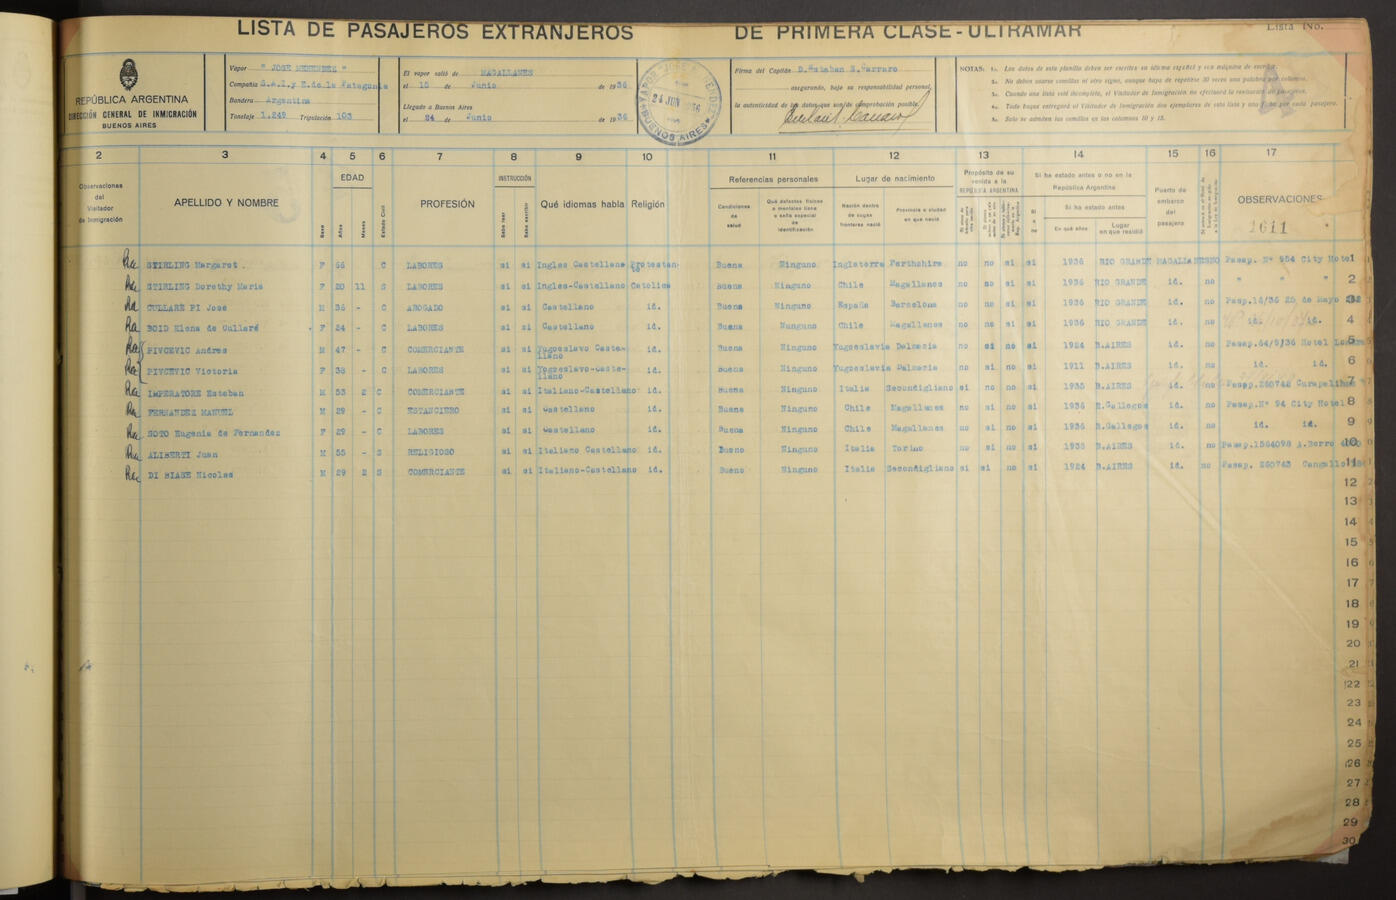 LISTA DE PASAJEROS EXTRANJEROS DE PRIMERA CLASE-ULTRAMAR
Lista No.
REPÚBLICA ARGENTINA
DIRECCIÓN GENERAL DE INMIGRACIÓN
BUENOS AIRES
Vapor " JOSE MENENDEZ "
Compañía S.A.I.y E.de la Patagonia
Bandera Argentina
Tonelaje 1.249 Tripulación 103
El vapor salió de MAGALLANES
el 15 de Junio de 1936
Llegado a Buenos Aires
el 24 de Junio de 1936
24 JUN 1936
BUENOS AIRES
Firma del Capitán D.Esteban
asegurando, bajo su responsabilidad personal,
la autenticidad de los datos que son de comprobación posible.
NOTAS: 1. Los datos de esta planilla deben ser escritos en idioma español y con máquina de escribir.
2. No deben usarse comillas ni otro signo, aunque haya de repetirse 30 veces una palabra por columna.
3. Cuando una lista esté incompleta, el Visitador de Inmigración no efectuará la revisación de pasajeros.
4. Todo buque entregará al Visitador de Inmigración dos ejemplares de esta lista y una ficha por cada pasajero.
5. Solo se admiten las comillas en las columnas 10 y 15.
2 3 4 5 6 7 8 9 10 11 12 13 14 15 16 17
Observaciones del Visitador de Inmigración
APELLIDO Y NOMBRE
Sexo
EDAD
Años
Meses
Estado Civil
PROFESIÓN
INSTRUCCIÓN
Sabe leer
Sabe escribir
Qué idiomas habla
Religión
Referencias personales
Condiciones de salud
Qué defectos físicos o mentales tiene o seña especial de identificación
Lugar de nacimiento
Nación dentro de cuyas fronteras nació
Provincia o ciudad en que nació
Propósito de su venida a la REPÚBLICA ARGENTINA
Si ha estado antes o no en la República Argentina
Si o no
Si ha estado antes
En qué años
Lugar en que residió
Puerto de embarco del pasajero
OBSERVACIONES
1611
STIRLING Margaret F 66 C LABORES si si Ingles Castellano Protestante Buena Ninguno Inglaterra Perthshire no no si si 1936 RIO GRANDE MAGALLANES no Pasap. Nº 954 City Hotel 1
STIRLING Dorothy Maris F 20 11 S LABORES si si Ingles-Castellano Catolica Buena Ninguno Chile Magallanes no no si si 1936 RIO GRANDE id. no " " " 2
CULLARE PI José M 36 - C ABOGADO si si Castellano id. Buena Ninguno España Barcelona no no si si 1936 RIO GRANDE id. no Pasap.16/36 25 de Mayo
BOID Elena de Cullaré F 24 - C LABORES si si Castellano id. Buena Nunguno Chile Magallanes no no si si 1936 RIO GRANDE id. no id. id. 4
PIVCEVIC Andres M 47 - C COMERCIANTE si si Yugoeslavo Castellano id. Buena Ninguno Yugoeslavia Dalmacia no si no si 1924 B.AIRES id. no Pasap.64/5/36 Hotel 5
PIVCEVIC Victoria F 38 - C LABORES si si Yugoeslavo-Castellano id. Buena Ninguno Yugoeslavia Dalmacia no si no si 1911 B.AIRES id. no id. id. 6
IMPERATORE Esteban M 53 2 C COMERCIANTE si si Italiano-Castellano id. Buena Ninguno Italia Secondigliano si no no si 1935 B.AIRES id. no Pasap.260746 7
FERNANDEZ MANUEL M 29 - C ESTANCIERO si si Castellano id. Buena Ninguno Chile Magallanes no si no si 1936 R.Gallegos id. no Pasap.Nº 94 City Hotel 8
SOTO Eugenia de Fernandez F 29 - C LABORES si si Castellano id. Buena Ninguno Chile Magallanes no si no si 1936 R.Gallegos id. no id. id. 9
ALIBERTI Juan M 55 - S RELIGIOSO si si Italiano Castellano id. Bueno Ninguno Italia Torino no si no si 1935 B.AIRES id. no Pasap.1564098 A.Berro 10
DI BIASE Nicolas M 29 2 S COMERCIANTE si si Italiano-Castellano id. Bueno Ninguno Italia Secondigliano si si no si 1924 B.AIRES id. no Pasap. 260743 Cangallo 11
12
13
14
15
16
17
18
19
20
21
22
23
24
25
26
27
28
29
30